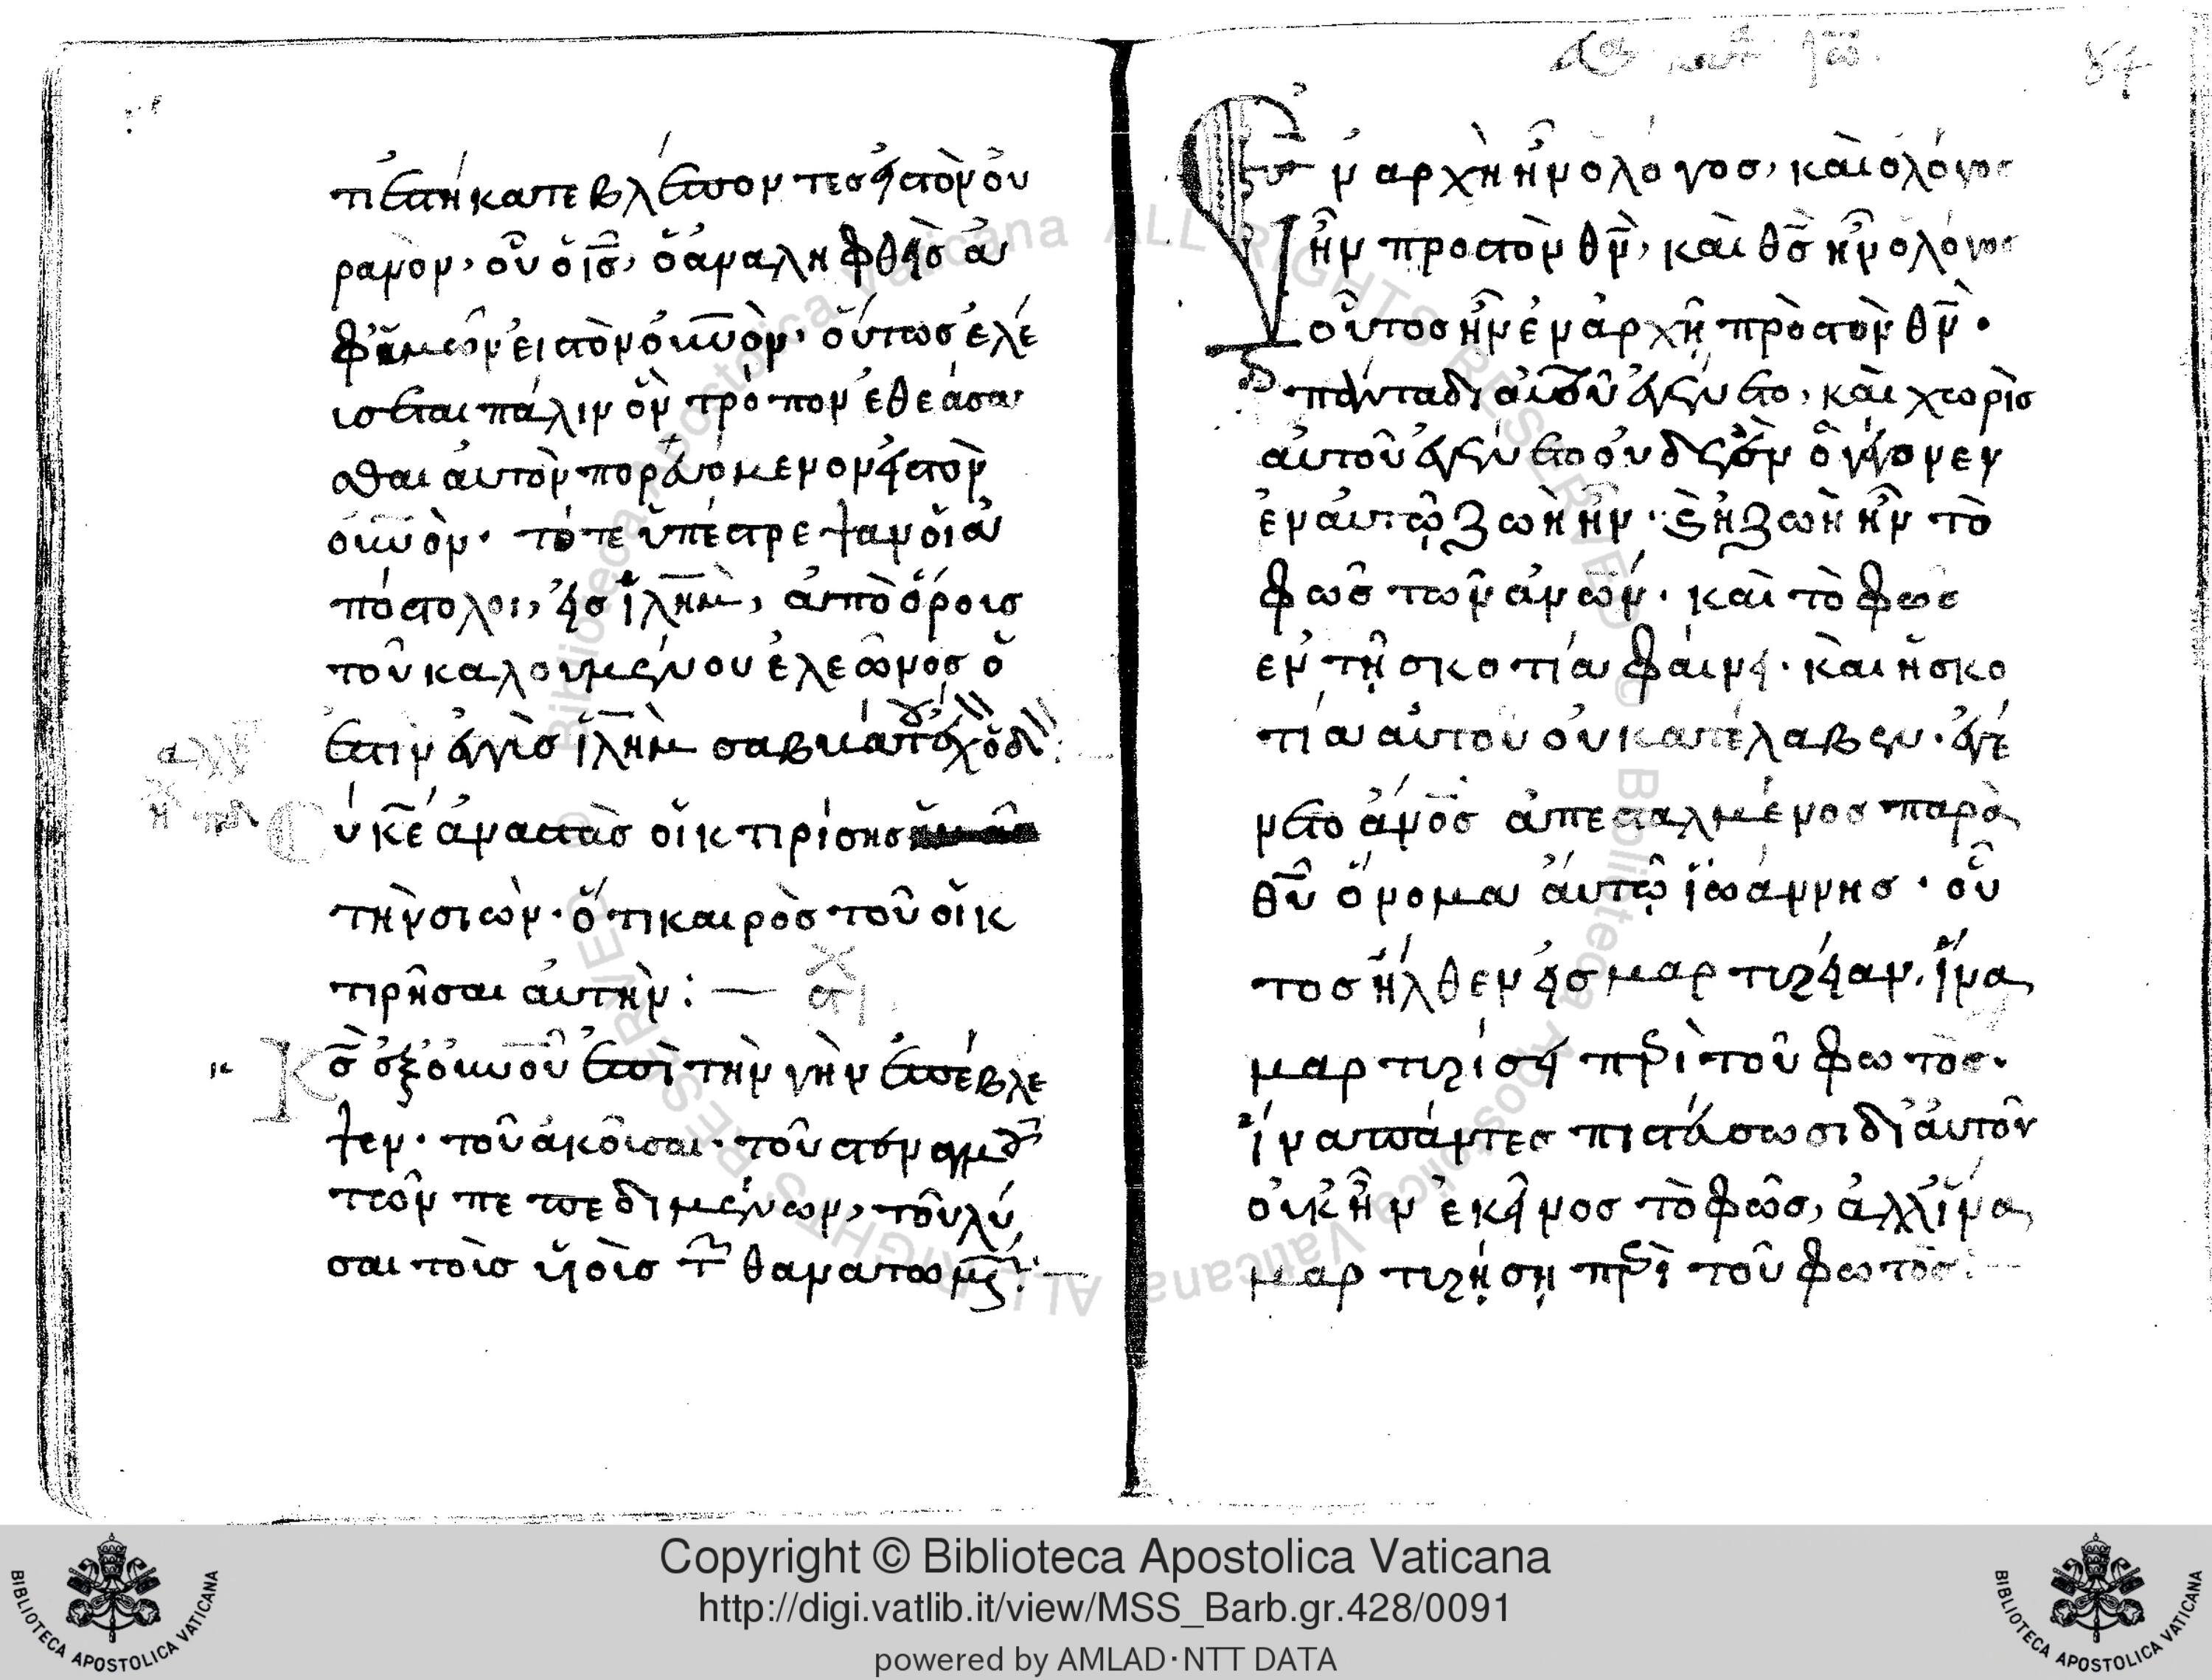 τι ἑστήκατε βλέποντες εἰς τὸν οὐ
ρανὸν, οὗτος ὁ ις, ὁ ἀναληφθεὶς ἀ
φ' ἡμῶν εἰς τὸν οὐνὸν· οὕτως ἐλέ
υσεται πάλιν ὃν τρόπον ἐθεάσα
σθαι αὐτὸν πορευόμενον εἰς τὸν
οὐνὸν· τότε ὑπέστρεψαν οἱ ἀ
πόστολοι, εἰς ιλημ, ἀπὸ ὄρους
τοῦ καλουμένου ἐλεῶνος ὅ
ἐστιν ἐγγὺς ιλημ σαββάτου ἔχον ὁδ
υ κε ἀναστὰς οἰκτιρίσης
τὴν σιὼν· ὅτι καιρὸς τοῦ οἰκ
τιρῆσαι αὐτὴν :—
Κς ἐξ οὐνοῦ ἐπὶ τὴν γὴν ἐπέβλε
ψεν· τοῦ ἀκοῦσαι τοῦ στεναγμοῦ
τῶν πεπεδιμένων, τοῦ λύ
σαι τοὺς υἱοὺς τῶν θανατωμέν
ἐκ τοῦ κατ ιω
84
Ἐν ἀρχὴ ἦν ὁ λόγος, καὶ ὁ λόγος
ἦν προς τὸν θν, καὶ θς ἦν ὁ λόγος
οὗτος ἦν ἐν ἀρχῆ πρὸς τὸν θν·
πάντα δι αὐτοῦ ἐγένετο, καὶ χωρὶς
αὐτοῦ ἐγένετο οὐδὲ ἓν ὃ γέγονεν
ἐν αὐτῷ ζωὴ ἦν· καὶ ἡ ζωὴ ἦν τὸ
φῶς τῶν ἀνων· καὶ τὸ φῶς
ἐν τῇ σκοτία φαίνει· καὶ ἡ σκο
τία αὐτοῦ οὐ κατέλαβεν· ἐγέ
νετο ἀνος ἀπεσταλμένος παρὰ
θυ ὄνομα αὐτῷ ἰωάννης· οὗ
τος ἦλθεν εἰς μαρτυρίαν, ἵνα
μαρτυρίσει περὶ τοῦ φωτὸς·
ἵνα πάντες πιστεύσωσι δι αὐτοῦ
οὐκ ἦν ἐκεῖνος τὸ φῶς, ἀλλ ἵνα
μαρτυρήσῃ περὶ τοῦ φωτὸς:—
Copyright © Biblioteca Apostolica Vaticana
http://digi.vatlib.it/view/MSS_Barb.gr.428/0091
powered by AMLAD·NTT DATA
BIBLIOTECA APOSTOLICA VATICANA
BIBLIOTECA APOSTOLICA VATICANA